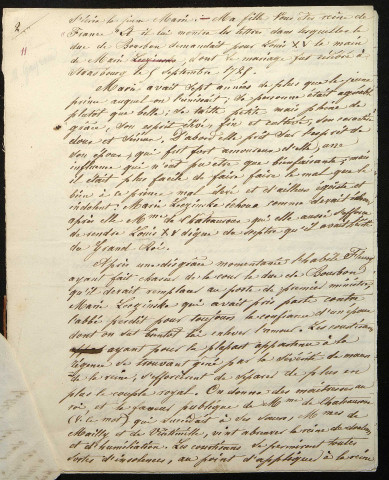 2.
11
à lui la jeune Marie. — Ma fille vous êtes reine de
France. Et il lui montra les lettres dans lesquelles le
duc de Bourbon demandait pour Louis XV la main
de Marie Leczinska, dont le mariage fut célébré à
Strasbourg le 5 septembre 1725.
Marie avait sept années de plus que le jeune
prince auquel on l'unissait; sa personne était agréable
plutôt que belle; sa taille petite mais pleine de
grâce, son esprit élevé, fin et cultivé; son caractère
doux et sérieux. D'abord elle prit sur l'esprit de
son époux, qui fut fort amoureux et elle, une
influence qui ne put qu'être que bienfaisante; mais
il était plus facile de faire faire le mal que le
bien à ce prince mal élevé et d'ailleurs égoïste et
indolent. Marie Leczinska échoua comme devait échouer
après elle Mme de Chateauroux qui elle aussi s'efforça
de rendre Louis XV digne du sceptre qu'il avait hérité
du Grand Roi.
Après une disgrâce momentanée l'habile Fleury
ayant fait chasser de la cour le duc de Bourbon
qu'il devait remplacer au poste de premier ministre,
Marie Leczinska qui avait pris parti contre
l'abbé perdit pour toujours la confiance d'un époux
dont on sut bientôt lui enlever l'amour. Les courtisans
ayant pour la plupart appartenu à la
régence se trouvant gênés par la sévérité de mœurs
de la reine, s'efforcèrent de séparer de plus en
plus le couple royal. On donna des maîtresses au
roi, et la faveur publique de Mme de Chateauroux
qui succédait à ses sœurs, Mmes de
Mailly et de Vintimille, vint abreuver la reine de douleur
et d'humiliation. Les courtisans se permirent toutes
sortes d'insolences, au point d'appliquer à la reine